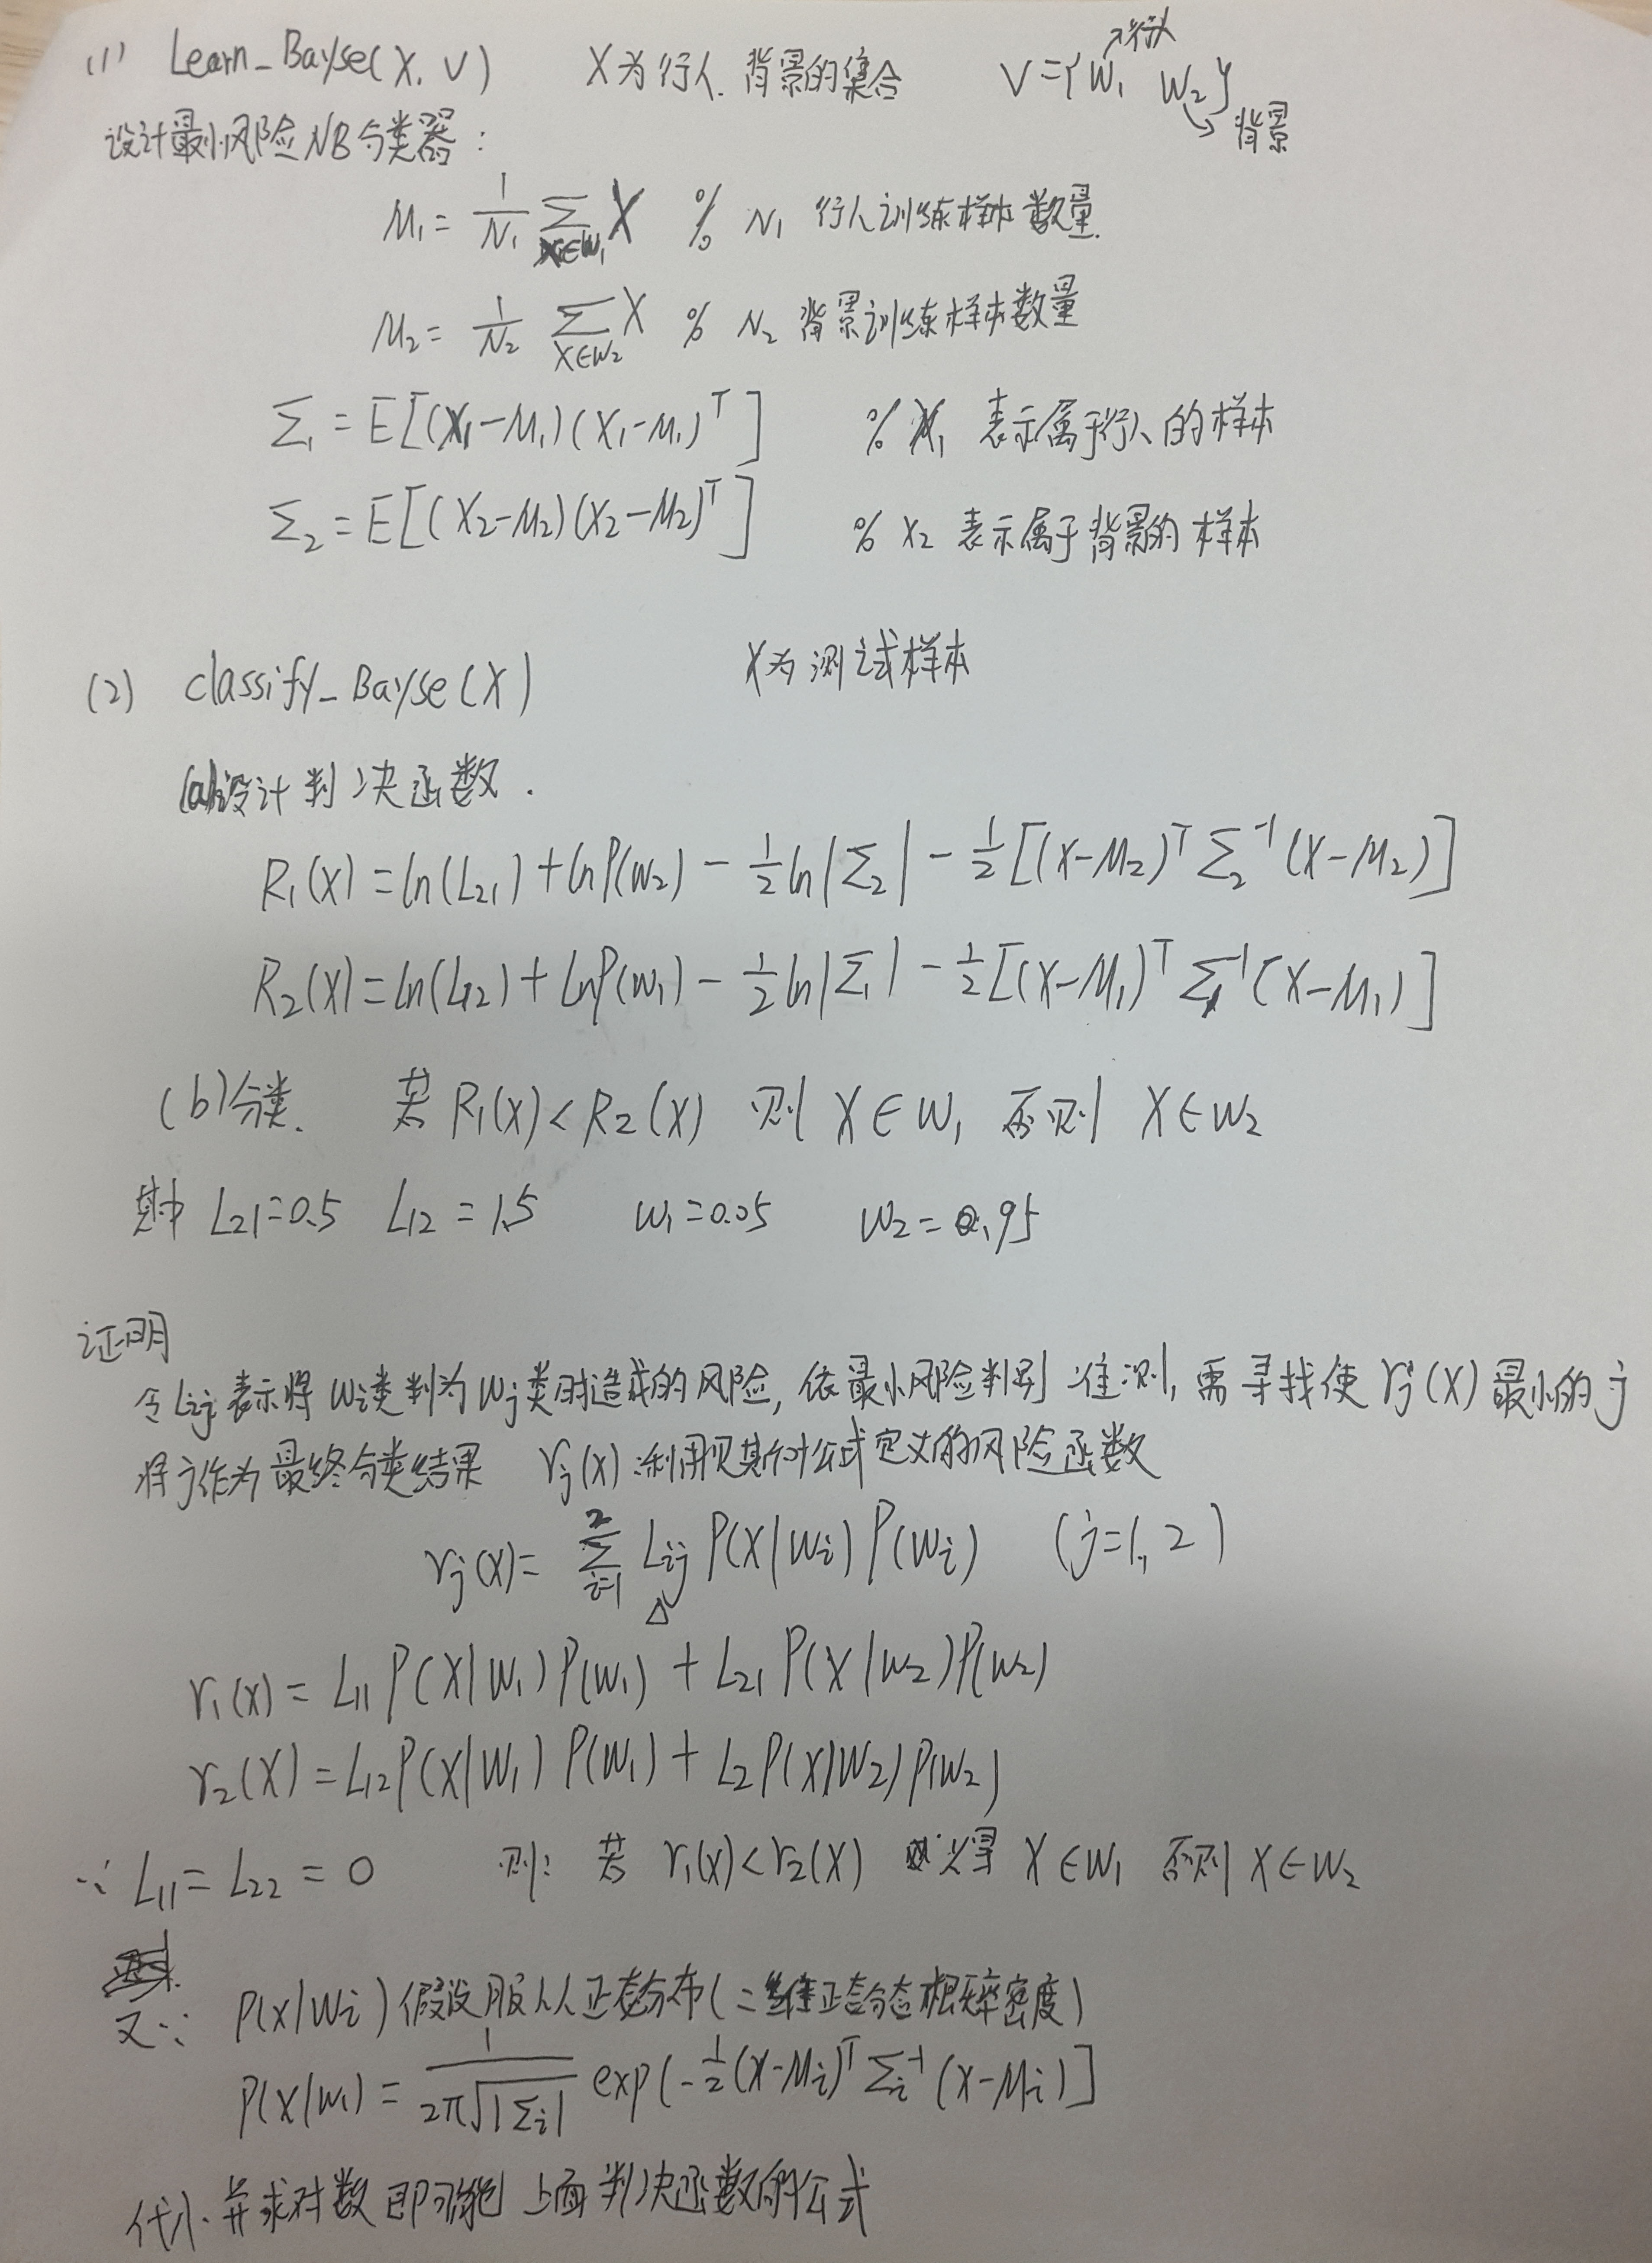 (1) Learn_Bayse(X, V) X为行人、背景的集合 V={W₁ W₂} ↗行人 ↘背景
设计最小风险NB分类器:
M₁ = 1/N₁ Σ_{X∈W₁} X % N₁ 行人训练样本数量.
M₂ = 1/N₂ Σ_{X∈W₂} X % N₂ 背景训练样本数量
Σ₁ = E[(X₁-M₁)(X₁-M₁)ᵀ] % X₁ 表示属于行人的样本
Σ₂ = E[(X₂-M₂)(X₂-M₂)ᵀ] % X₂ 表示属于背景的样本
(2) classify_Bayse(X) X为测试样本
(a)设计判决函数.
R₁(X) = ln(L₂₁) + lnP(W₂) - 1/2 ln|Σ₂| - 1/2[(X-M₂)ᵀ Σ₂⁻¹ (X-M₂)]
R₂(X) = ln(L₁₂) + lnP(W₁) - 1/2 ln|Σ₁| - 1/2[(X-M₁)ᵀ Σ₁⁻¹ (X-M₁)]
(b)分类. 若 R₁(X) < R₂(X) 则 X∈W₁ 否则 X∈W₂
其中 L₂₁=0.5 L₁₂=1.5 W₁=0.05 W₂=0.95
证明
令Lij表示将Wi类判为Wj类时造成的风险, 依最小风险判别准则, 需寻找使 rj(X) 最小的j
将j作为最终分类结果 rj(X):利用贝其斯公式定义的风险函数
rj(X) = Σ_{i=1}^{2} Lij P(X|Wi) P(Wi) (j=1, 2)
r₁(X) = L₁₁ P(X|W₁) P(W₁) + L₂₁ P(X|W₂) P(W₂)
r₂(X) = L₁₂ P(X|W₁) P(W₁) + L₂ P(X|W₂) P(W₂)
∵ L₁₁ = L₂₂ = 0 则: 若 r₁(X) < r₂(X) 必得 X∈W₁ 否则 X∈W₂
又∵ P(X|Wi) 假设服从正态分布(二维正态分态概率密度)
P(X|Wi) = 1/(2π√|Σi|) exp(-1/2 (X-Mi)ᵀ Σi⁻¹ (X-Mi)]
代入.并求对数即可 上面判决函数的公式